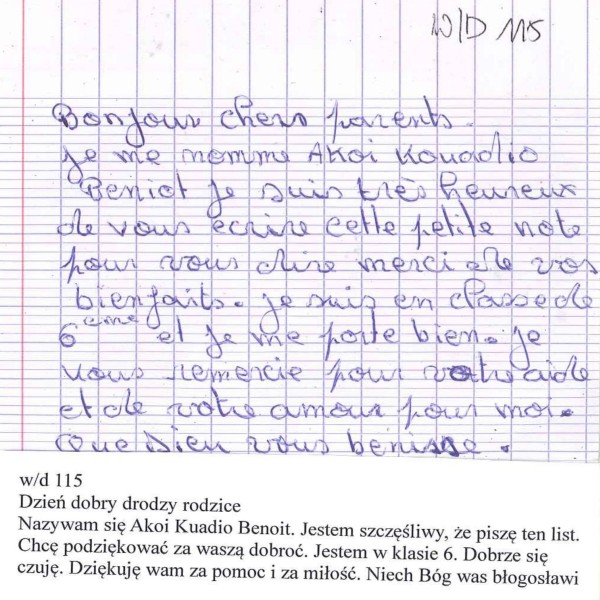 W/D 115
Bonjour chers parents.
je me nomme AKoi Kouadio
Beniot je suis très heureux
de vous écrire cette petite note
pour vous dire merci de vos
bienfaits. je suis en classe de
6ème et je me porte bien. je
vous remercie pour votre aide
et de votre amour pour moi.
Que Dieu vous bénisse.
w/d 115
Dzień dobry drodzy rodzice
Nazywam się Akoi Kuadio Benoit. Jestem szczęśliwy, że piszę ten list.
Chcę podziękować za waszą dobroć. Jestem w klasie 6. Dobrze się
czuję. Dziękuję wam za pomoc i za miłość. Niech Bóg was błogosławi